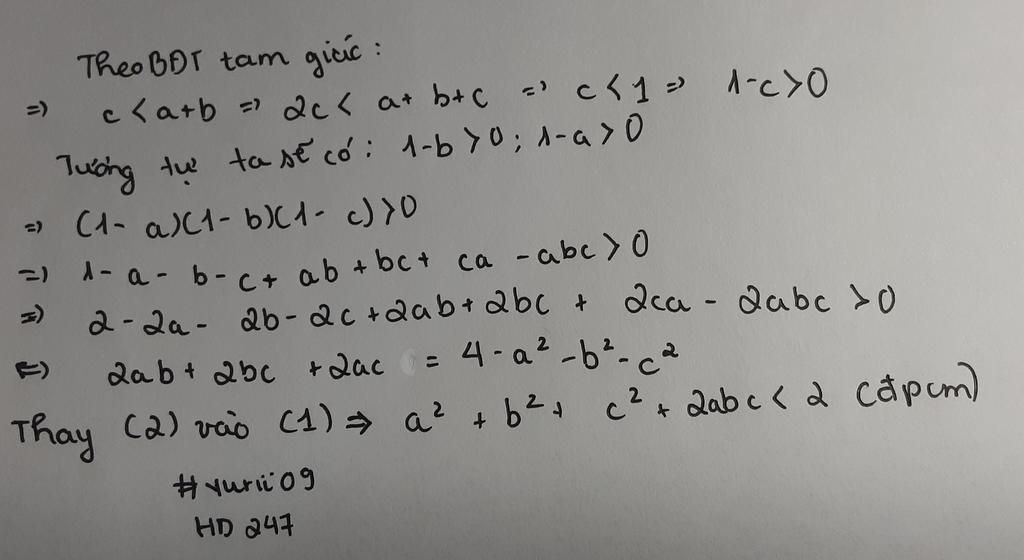 Theo BĐT tam giác :
=) c < a+b =) 2c < a+ b+c =) c < 1 =) 1-c > 0
Tương tự ta sẽ có : 1-b > 0 ; 1-a > 0
=) (1- a)(1- b)(1- c) > 0
=) 1- a - b - c + ab + bc + ca - abc > 0
=) 2 - 2a - 2b - 2c + 2ab + 2bc + 2ca - 2abc > 0
(=) 2ab + 2bc + 2ac = 4 - a² - b² - c²
Thay (2) vào (1) => a² + b² + c² + 2abc < 2 (đpcm)
# yurii 09
HD 247